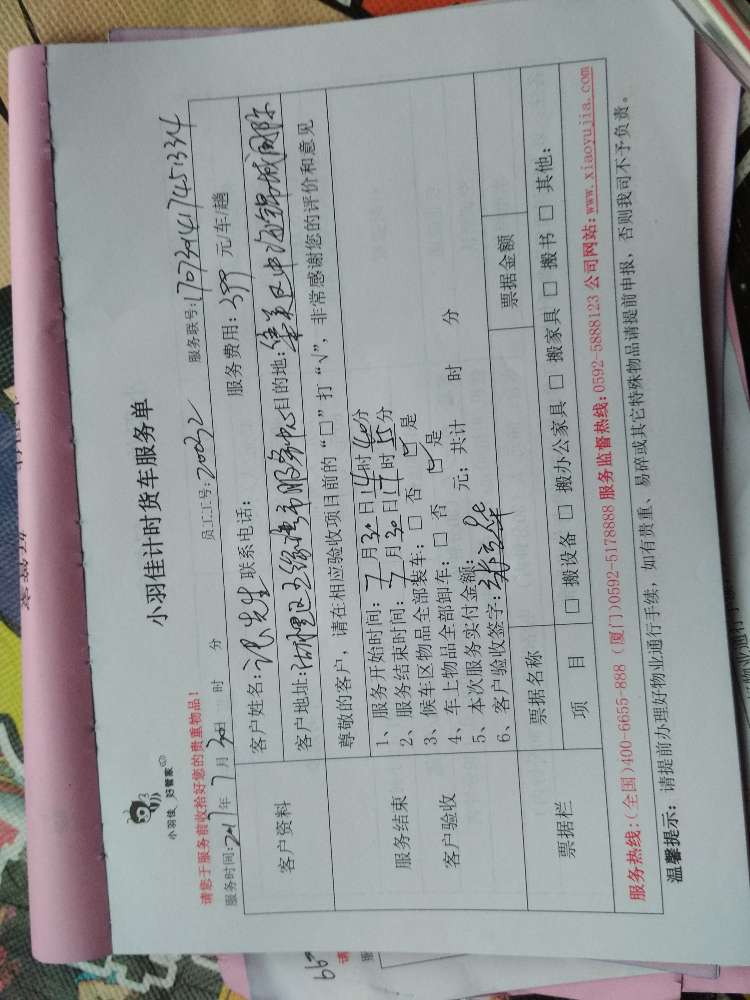 小羽佳计时货车服务单
小羽佳 好管家
请您于服务前收拾好您的贵重物品！
服务时间:2017年7月30日 时 分 员工工号:20032 服务联号:170730417451334
服务费用: 399 元/车/趟
客户资料
客户姓名: 先生 联系电话:
客户地址:湖里区五缘湾 目的地:集美区中海锦城国际
尊敬的客户，请在相应验收项目前的“□”打“√”，非常感谢您的评价和意见
服务结束
客户验收
1、服务开始时间: 7月30日14时40分
2、服务结束时间: 7月30日17时15分
3、候车区物品全部装车: □ 否 ☑ 是
4、车上物品全部卸车: □ 否 ☑ 是
5、本次服务实付金额: 元；共计 时 分
6、客户验收签字:
票据栏
票据名称 票据金额
项 目 □ 搬设备 □ 搬办公家具 □ 搬家具 □ 搬书 □ 其他:
服务热线:(全国)400-6655-888 (厦门)0592-5178888 服务监督热线:0592-5888123 公司网站:www.xiaoyujia.com
温馨提示: 请提前办理好物业通行手续，如有贵重、易碎或其它特殊物品请提前申报，否则我司不予负责。